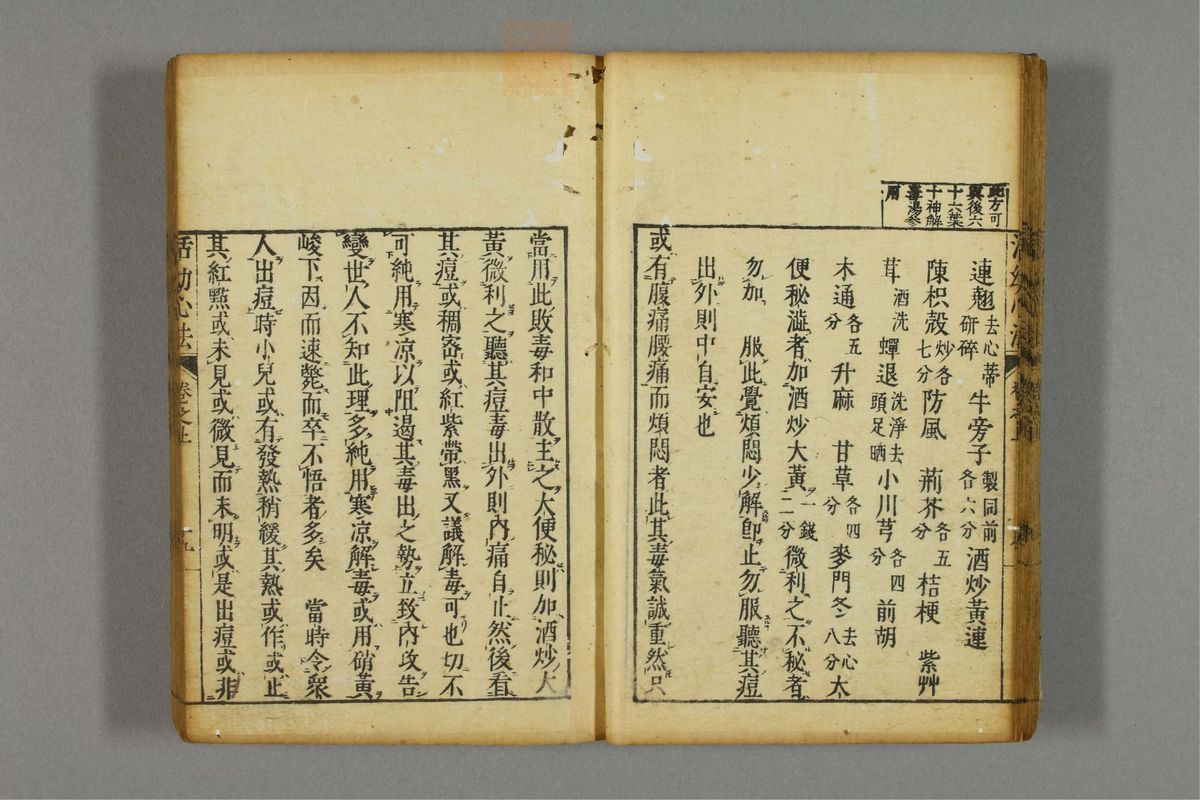 此方可
與後六
十六葉
十神解
毒湯參
用
連翹去心蒂研碎牛旁子製同前各六分酒炒黃連
陳枳殼炒各七分防風 荊芥各五分桔梗 紫艸
茸酒洗蟬退洗淨去頭足晒小川芎各四分前胡
木通各五分升麻 甘草各四分麥門冬去心八分大
便秘澁者加酒炒大黃一錢二分微利之不秘者
勿加 服此覺煩悶少解即止勿服聽其痘
出外則中自安也
或有腹痛腰痛而煩悶者此其毒氣誠重然只
當用此敗毒和中散主之大便秘則加酒炒大
黃微利之聽其痘毒出外則內痛自止然後看
其痘或稠密或紅紫帶黑又議解毒可也切不
可純用寒凉以阻遏其毒出之勢立致內攻告
變世人不知此理多純用寒凉解毒或用硝黃
峻下因而速斃而卒不悟者多矣 當時令眾
人出痘時小兒或有發熱稍緩其熱或作或止
其紅點或未見或微見而未明或是出痘或非
活幼心法 卷之上 十九